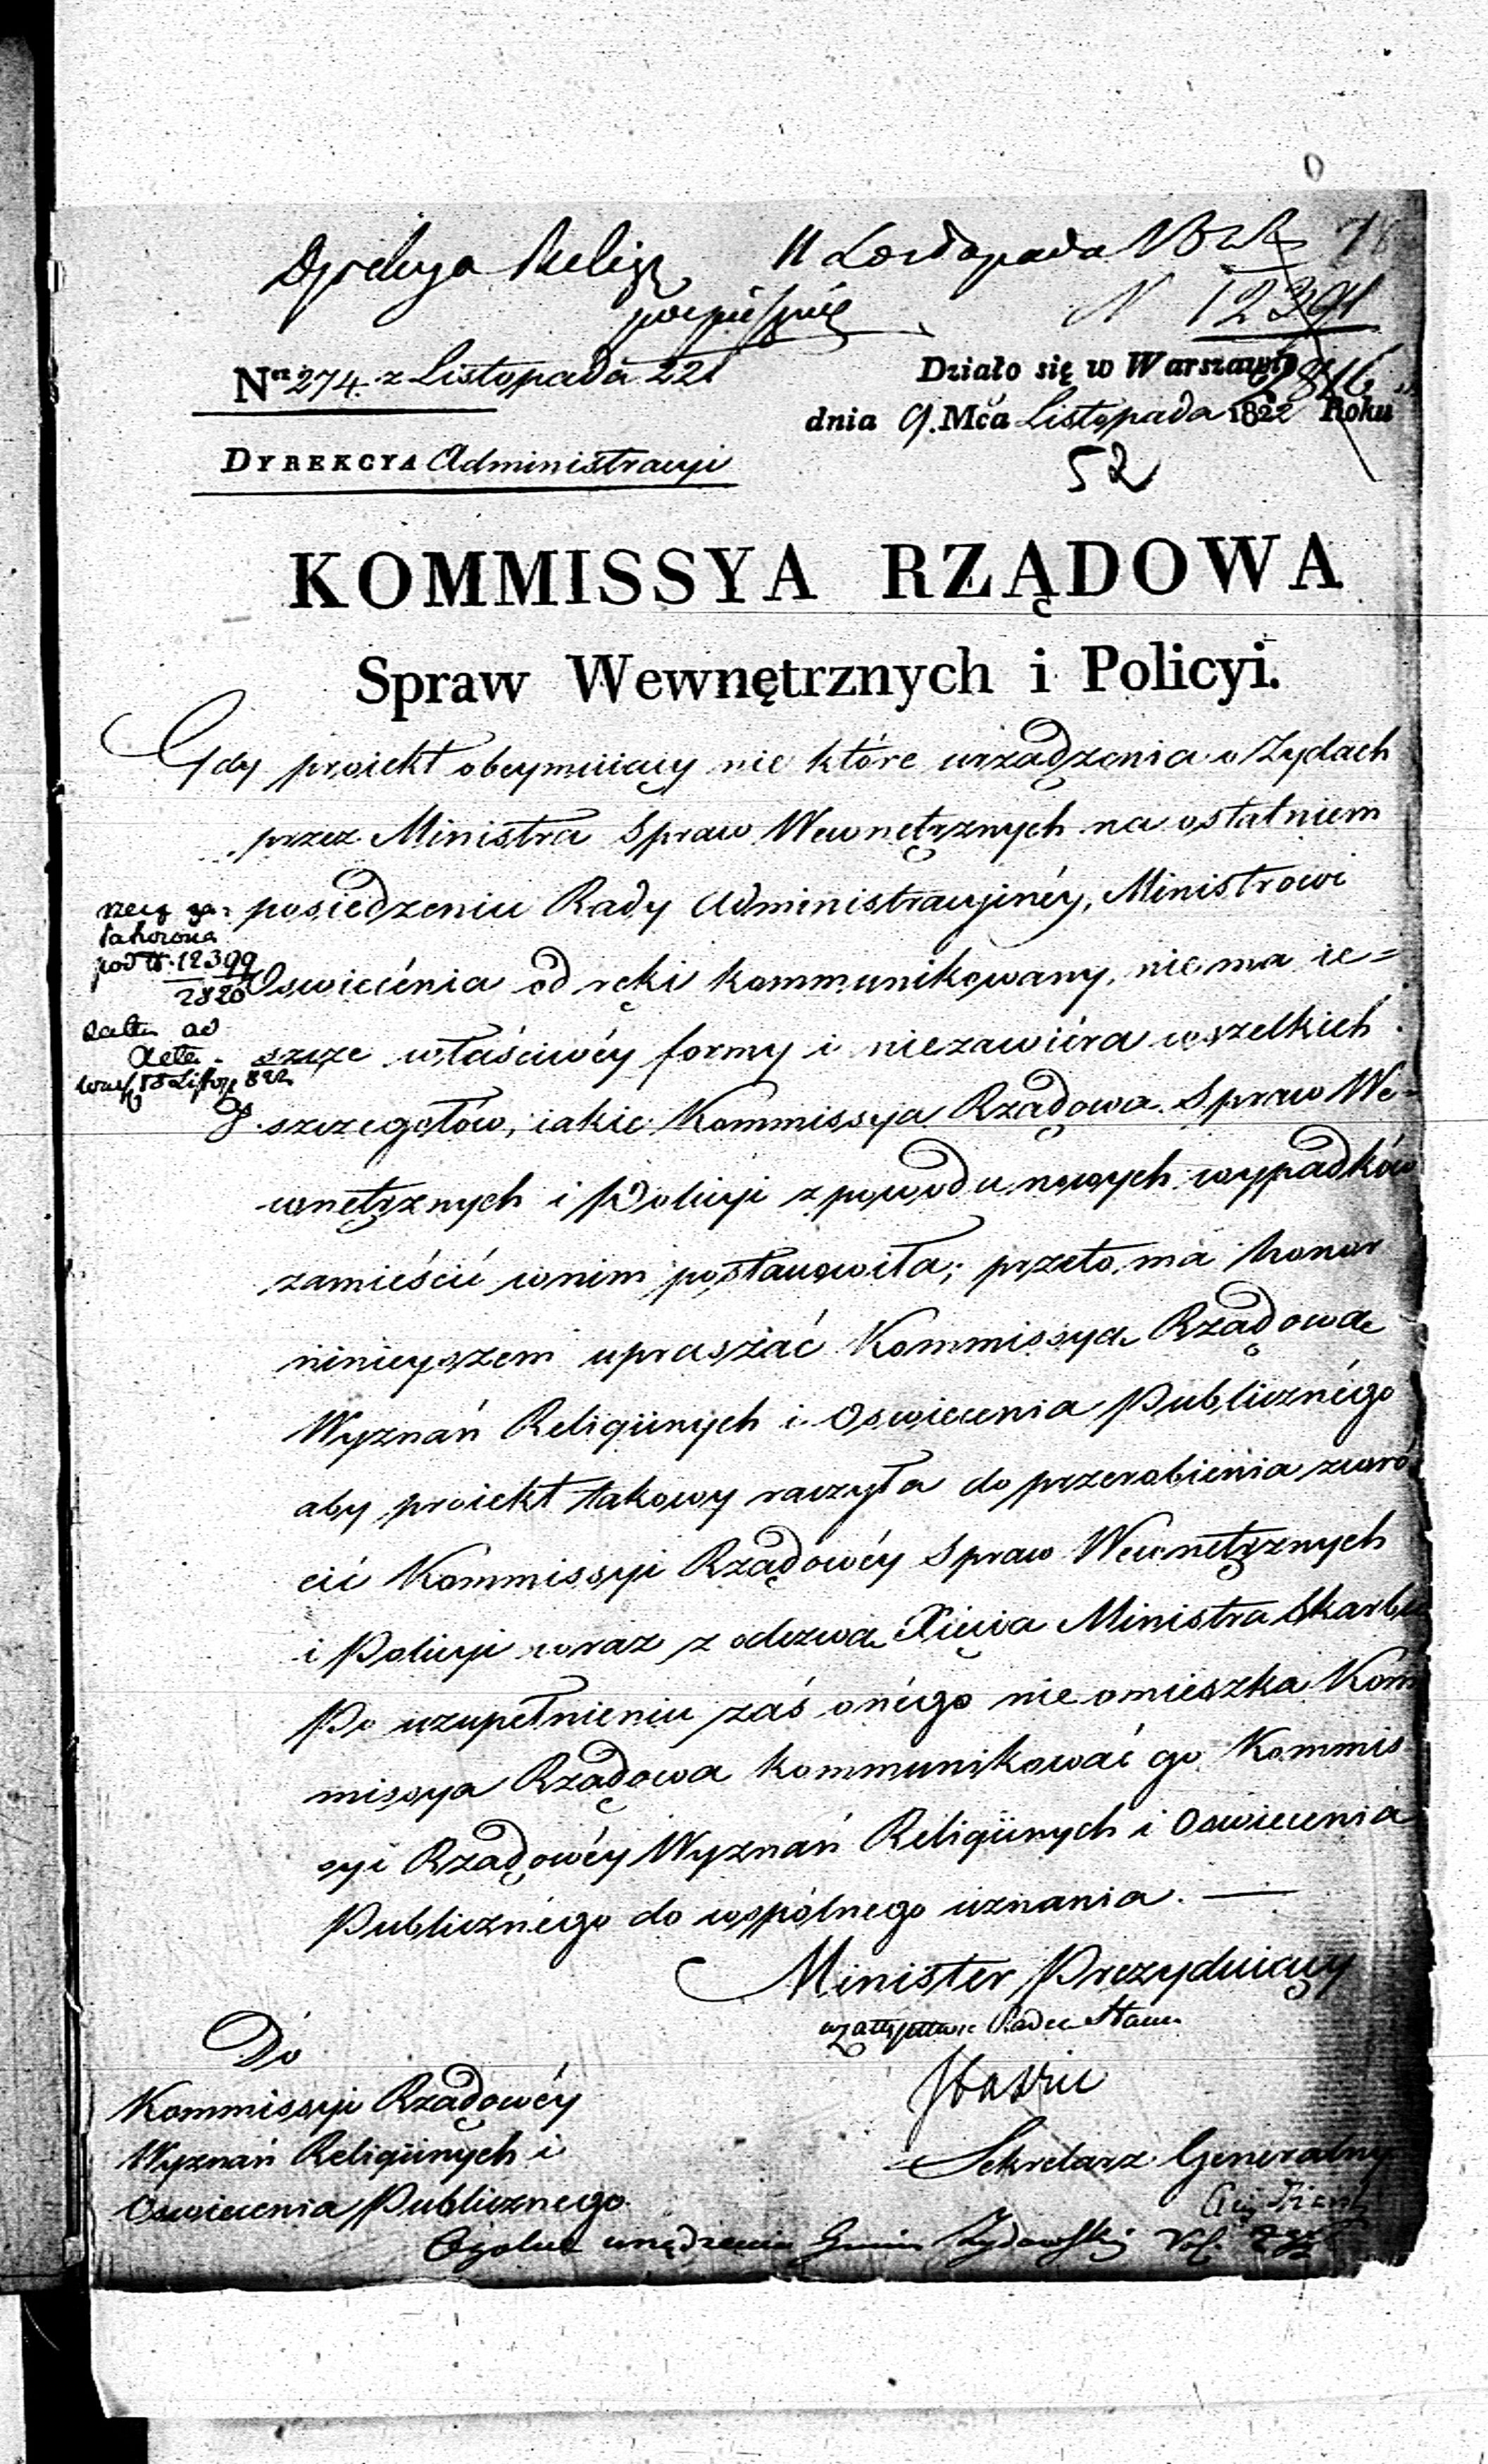 Dyrekcya Religij 11 Listopada 1822 78
pospiesznie N 12391
Nr 274. z Listopada 22
Działo się w Warszawie
2816
dnia 9. Mca Listopada 1822 Roku
DYREKCYA Administracyi
52
KOMMISSYA RZĄDOWA
Spraw Wewnętrznych i Policyi.
Gdy proiekt obeymuiący nie które urządzenia o Żydach
przez Ministra Spraw Wewnętrznych na ostatniem
posiedzeniu Rady Administracyjnéy, Ministrowi
Oswiecénia od ręki kommunikowany, niema ie=
szcze właściwéy formy i niezawiéra wszelkich
szczegołów, iakie Kommissya Rządowa Spraw We=
wnętrznych i Policyi z powodu nowych wypadków
zamieścić wnim postanowiła; przeto ma honor
ninieyszem upraszać Kommissyą Rządową
Wyznań Religiinych i Oswiecenia Publicznégo
aby proiekt takowy raczyła do przerobienia zwró
cić Kommissyi Rządowéy Spraw Wewnętrznych
i Policyi wraz z odezwą Xięcia Ministra Skarbu
Po uzupełnieniu zaś onégo nie omieszka Kom
missya Rządowa kommunikować go Kommis
syi Rządowéy Wyznań Religiinych i Oswiecenia
Publicznégo do wspólnego uznania. —
pod N. 12399
2820
ad
Acta
Minister Prezyduiący
w zastępstwie Radca Stanu
Staszic
Do
Kommissyi Rządowéy
Wyznań Religiinych i
Oswiecenia Publicznego
Sekretarz Generalny
urządzenia Gmin Żydowskich Vol.